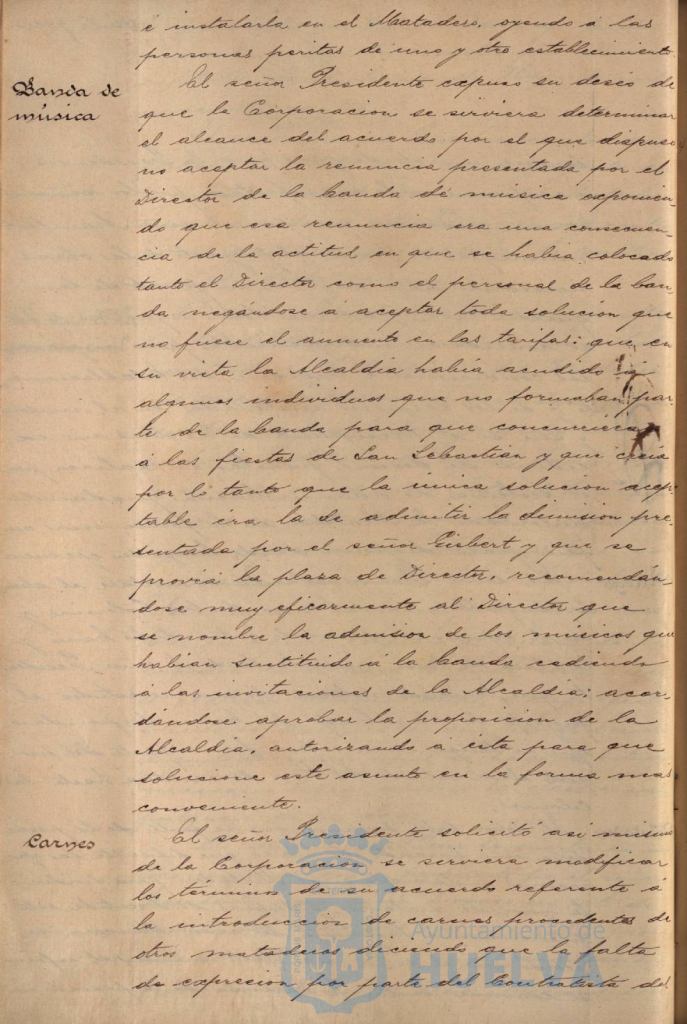 é instalarla en el Matadero, oyendo á las
personas peritas de uno y otro establecimiento.
Banda de
música
El señor Presidente expuso su deseo de
que la Corporacion se sirviera determinar
el alcance del acuerdo por el que dispuso
no aceptar la renuncia presentada por el
Director de la banda de musica exponien-
do que esa renuncia era una consecuen-
cia de la actitud en que se habia colocado
tanto el Director como el personal de la ban-
da negándose á aceptar toda solución que
no fuese el aumento en las tarifas: que en
su vista la Alcaldia había acudido á
algunos individuos que no formaban par-
te de la banda para que concurrieran
á las fiestas de San Sebastian y que creia
por lo tanto que la única solucion acep-
table era la de admitir la dimision pre-
sentada por el señor Gisbert y que se
provea la plaza de Director, recomendán-
dose muy eficazmente al Director que
se nombre la admision de los músicos que
habian sustituido á la banda cediendo
á las invitaciones de la Alcaldia; acor-
dándose aprobar la proposicion de la
Alcaldia, autorizando á esta para que
solucione este asunto en la forma mas
conveniente.
Carnes
El señor Presidente solicitó asi mismo
de la Corporacion se serviera modificar
los términos de su acuerdo referente á
la introduccion de carnes procedentes de
otros mataderos diciendo que la falta
de expresion por parte del Contratista del
Ayuntamiento de
HUELVA